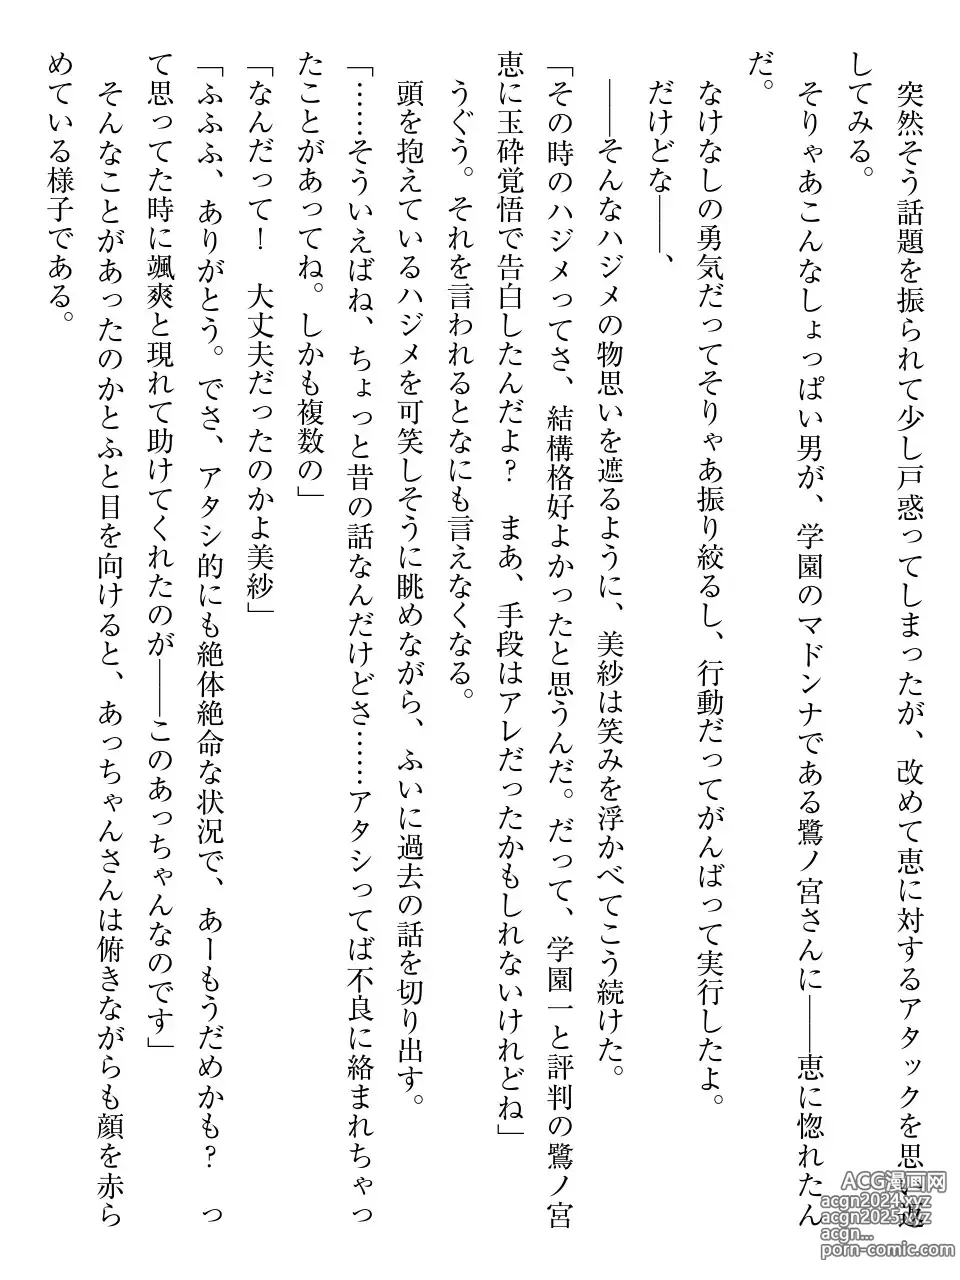 突然そう話題を振られて少し戸惑ってしまったが、改めて恵に対するアタックを思い返
してみる。
そりゃあこんなしょっぱい男が、学園のマドンナである鷺ノ宮さんに――恵に惚れたん
だ。
なけなしの勇気だってそりゃあ振り絞るし、行動だってがんばって実行したよ。
だけどな――、
――そんなハジメの物思いを遮るように、美紗は笑みを浮かべてこう続けた。
「その時のハジメってさ、結構格好よかったと思うんだ。だって、学園一と評判の鷺ノ宮
恵に玉砕覚悟で告白したんだよ？　まあ、手段はアレだったかもしれないけれどね」
うぐう。それを言われるとなにも言えなくなる。
頭を抱えているハジメを可笑しそうに眺めながら、ふいに過去の話を切り出す。
「……そういえばね、ちょっと昔の話なんだけどさ……アタシってば不良に絡まれちゃっ
たことがあってね。しかも複数の」
「なんだって！　大丈夫だったのかよ美紗」
「ふふふ、ありがとう。でさ、アタシ的にも絶体絶命な状況で、あーもうだめかも？　っ
て思ってた時に颯爽と現れて助けてくれたのが――このあっちゃんなのです」
そんなことがあったのかとふと目を向けると、あっちゃんさんは俯きながらも顔を赤ら
めている様子である。
ACG漫画网
acgn2024.xyz
acgn2025.xyz
acgn...
porn-comic.com